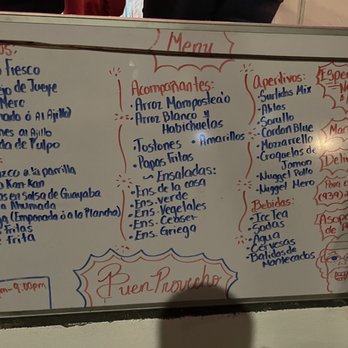 Menú
Fresco
de Jueye
Mero
ó Al Ajillo
al Ajillo
de Pulpo
a la parrilla
Kan-Kan
en Salsa de Guayaba
Ahumada
(Empanada ó a la Plancha)
Fritas
Frita
9:00pm
Acompañantes:
Arroz Mamposteao
Arroz Blanco y
Habichuelas
Tostones • Amarillos
Papas Fritas
~ Ensaladas:
- Ens. de la casa
- Ens. verde
- Ens. Vegetales
- Ens. Ceaser
- Ens. Griega
Buen Provecho
Aperitivos:
- Surtidos Mix
- Alitas
- Sorullo
- Cordon Blue
- Mozzarella
- Croquetas de
Jamon
- Nugget Pollo
- Nugget Mero
Bebidas:
- Ice Tea
- Sodas
- Agua
- Cervesas
- Batidas de
Mantecados
Espe
Mar
Deli
Para
(939)
Asopa
de